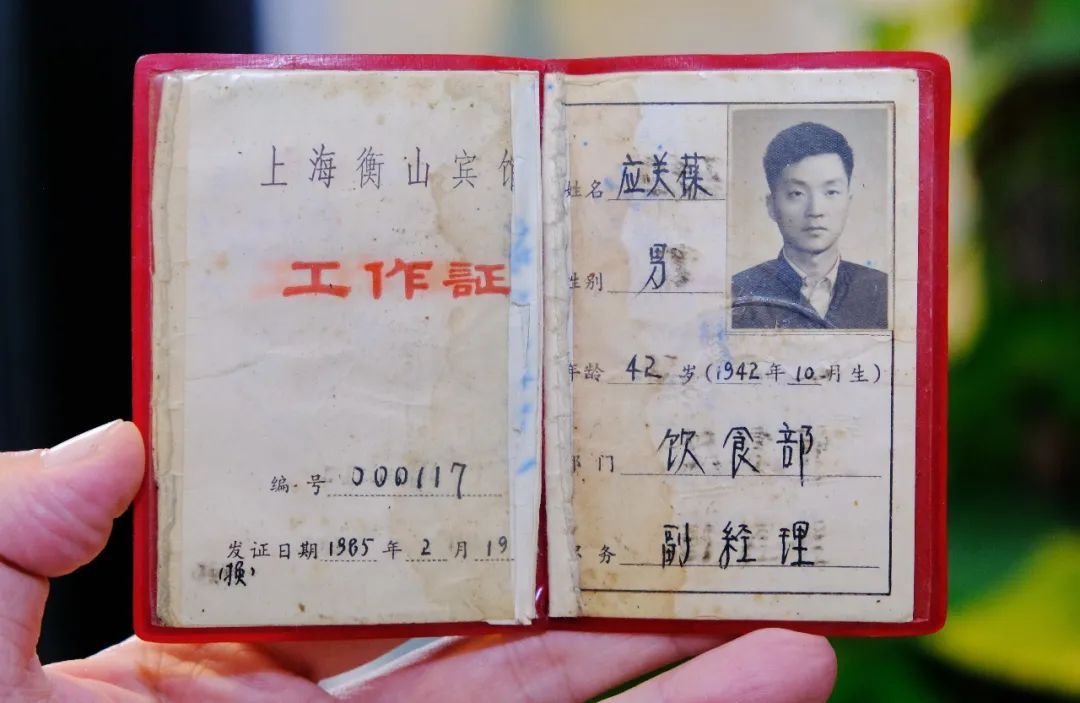 上海衡山宾馆
工作証
编号 000117
发证日期 1985 年 2 月 19
姓名 应关葆
性别 男
年龄 42 岁(1942年10月生)
部门 饮食部
职务 副经理